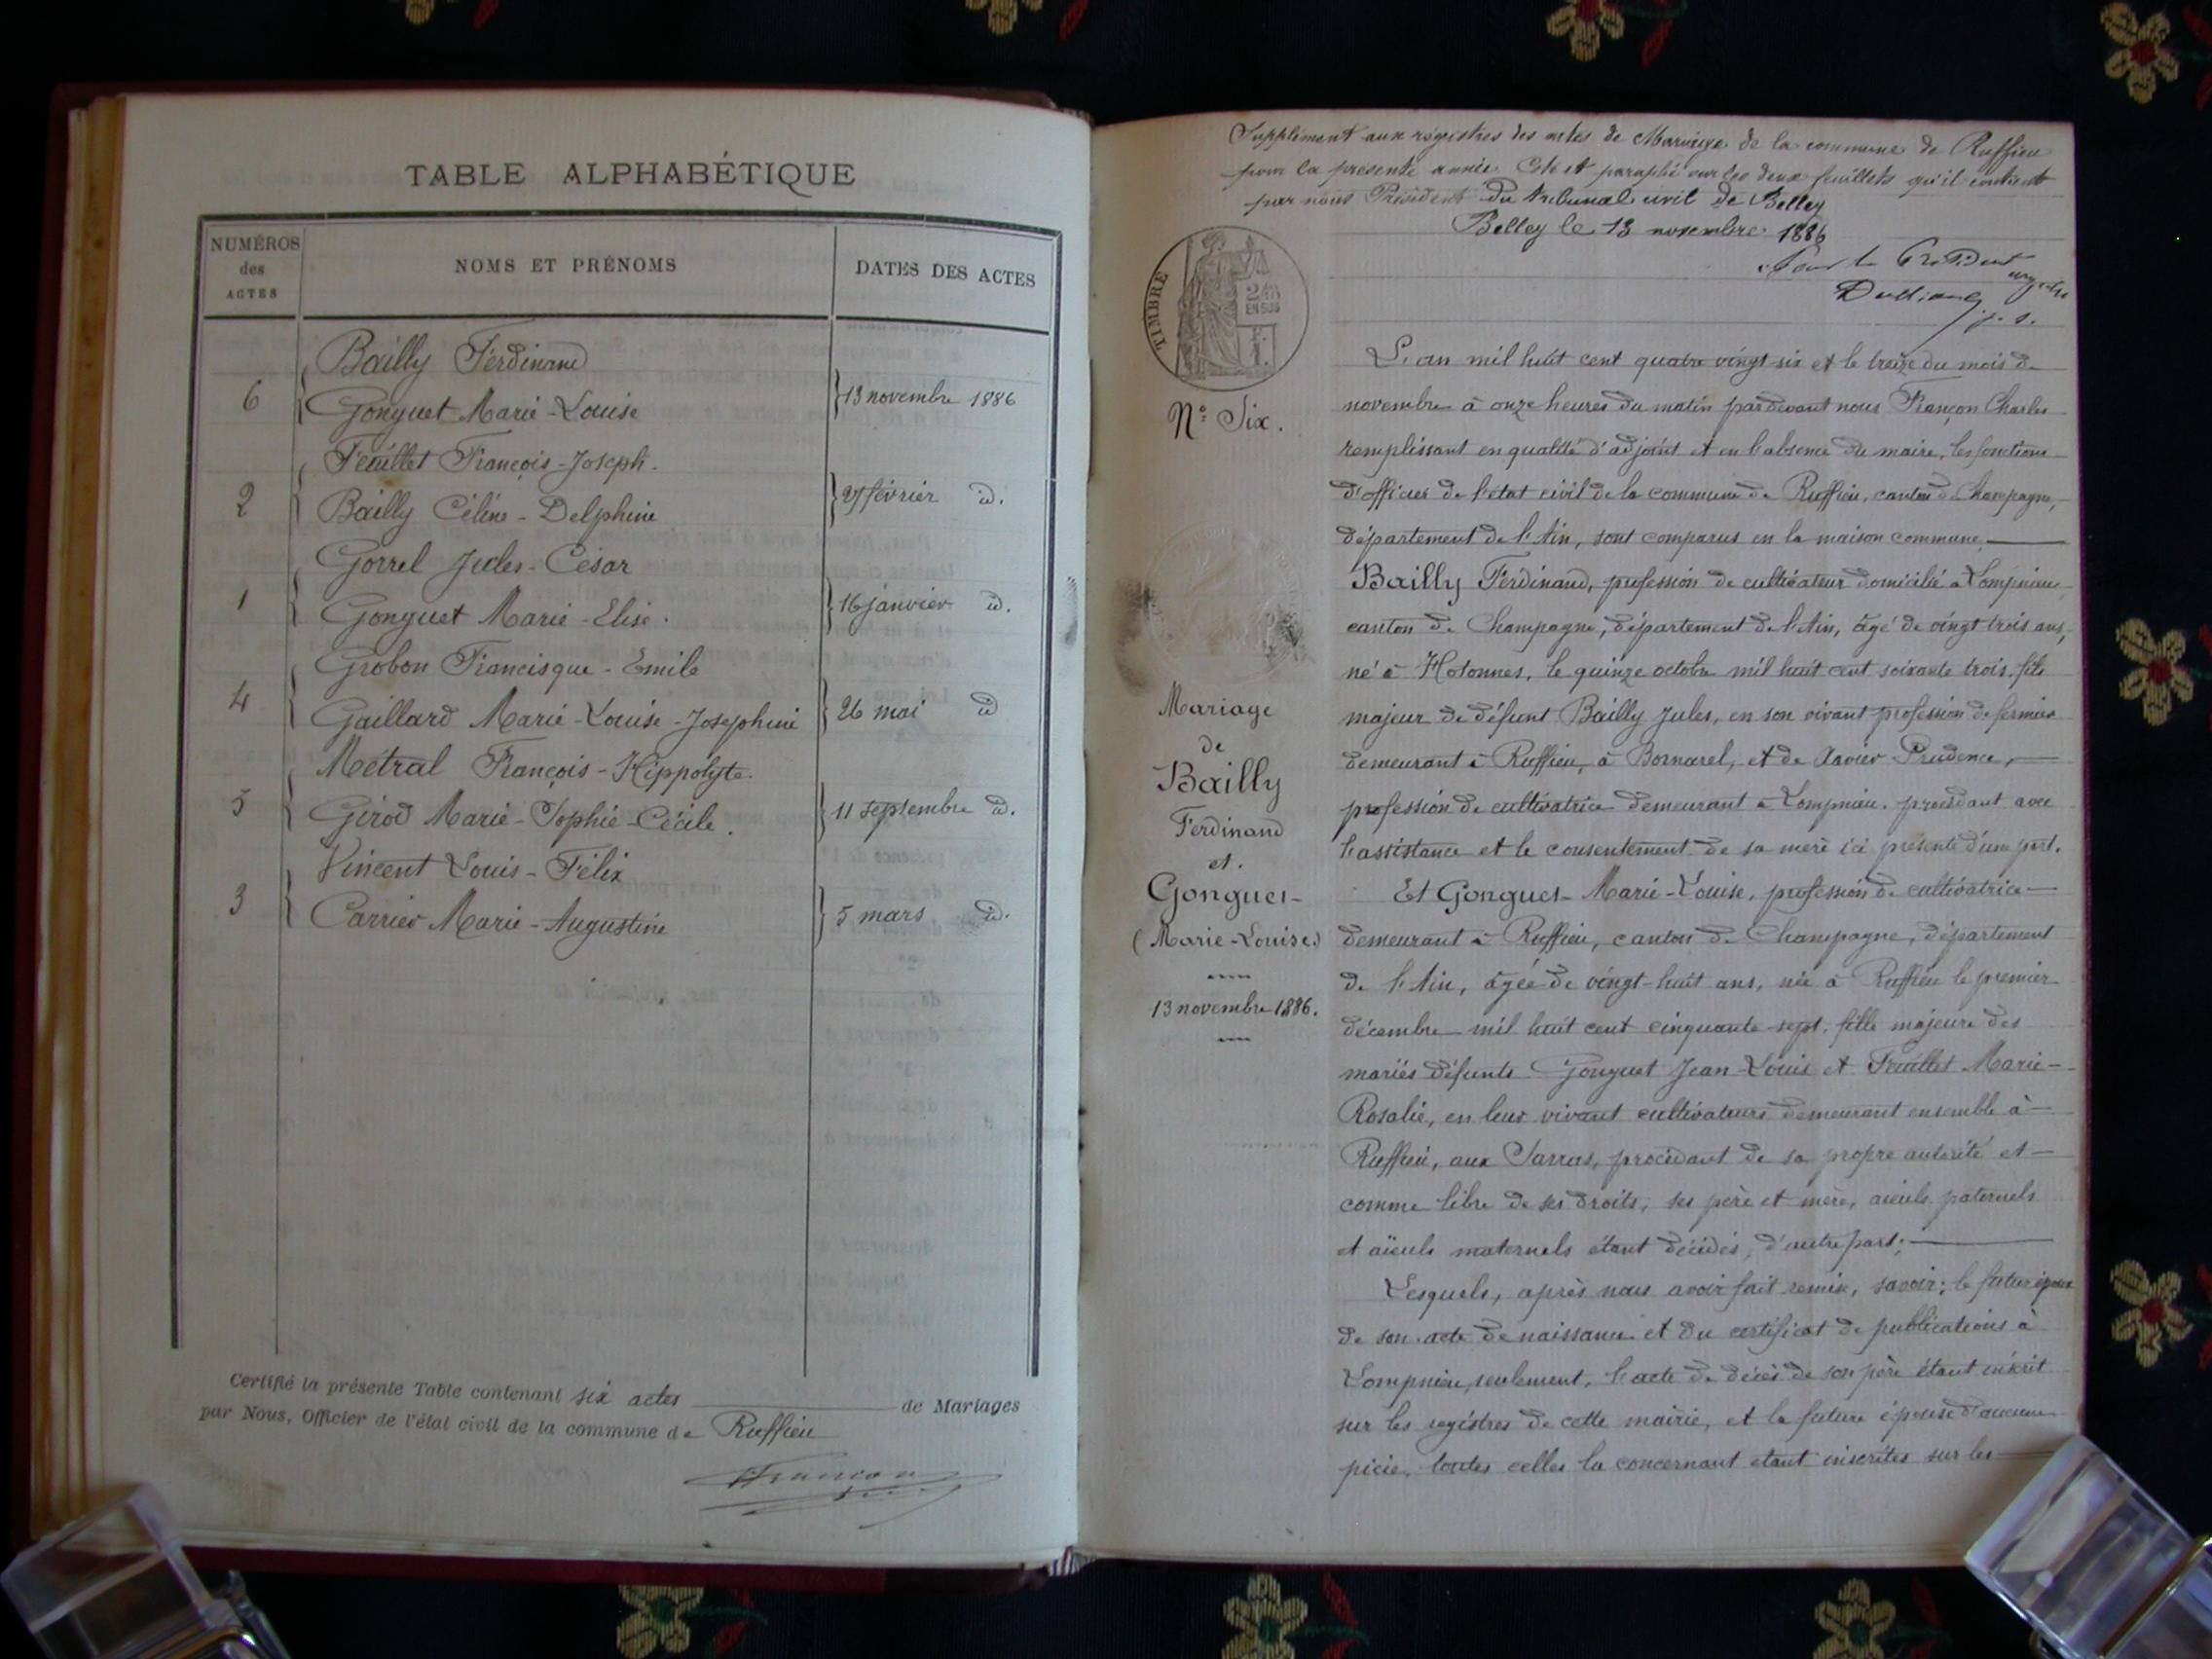 TABLE ALPHABÉTIQUE
NUMÉROS des ACTES
NOMS ET PRÉNOMS
DATES DES ACTES
Bailly Ferdinand
6 Gonguet Marie-Louise 13 novembre 1886
Feuillet François-Joseph.
2 Bailly Céline-Delphine 27 février id.
Gorrel Jules-César
1 Gonguet Marie-Elise. 16 janvier id.
Grobon Francisque-Emile
4 Gaillard Marie-Louise-Josephine 26 mai id
Métral François-Hippolyte.
5 Girod Marie-Sophie-Cécile. 11 septembre id.
Vincent Louis-Félix
3 Carrier Marie-Augustine 5 mars id.
Certifié la présente Table contenant six actes de Mariages
par Nous, Officier de l'état civil de la commune de Ruffieu
Françon
Supplément aux régistres des actes de Mariage de la commune de Ruffieu
pour la présente année. Coté et paraphé sur les deux feuillets qu'il contient
par nous Président du tribunal civil de Belley
Belley le 13 novembre 1886
Pour le Président
j. s.
TIMBRE
EN SUS
N° Six.
Mariage
de
Bailly
Ferdinand
et.
Gonguet
(Marie-Louise.)
13 novembre 1886.
L'an mil huit cent quatre vingt-six et le treize du mois de
novembre à onze heures du matin par devant nous Françon Charles
remplissant en qualité d'adjoint et en l'absence du maire, les fonctions
d'officier de l'état civil de la commune de Ruffieu, canton de Champagne,
département de l'Ain, sont comparus en la maison commune
Bailly Ferdinand, profession de cultivateur domicilié à Lompnieu,
canton de Champagne, département de l'Ain, âgé de vingt trois ans,
né à Hotonnes, le quinze octobre mil huit cent soixante trois, fils
majeur de défunt Bailly Jules, en son vivant profession de fermier
demeurant à Ruffieu, à Bornarel, et de Anvier Prudence,
profession de cultivatrice demeurant à Lompnieu. procédant avec
l'assistance et le consentement de sa mère ici présente d'une part.
Et Gonguet Marie-Louise, profession de cultivatrice
demeurant à Ruffieu, canton de Champagne, département
de l'Ain, âgée de vingt-huit ans, née à Ruffieu le premier
décembre mil huit cent cinquante sept, fille majeure des
mariés défunts Gonguet Jean-Louis et Feuillet Marie-
Rosalie, en leur vivant cultivateurs demeurant ensemble à
Ruffieu, aux Sarras, procédant de sa propre autorité et
comme libre de ses droits, ses père et mère, aieuls paternels
et aïeuls maternels étant décédés, d'autre part;
Lesquels, après nous avoir fait remise, savoir: le futur époux
de son acte de naissance et du certificat de publications à
Lompnieu, seulement, l'acte de décès de son père étant inscrit
sur les registres de cette mairie, et la future épouse d'aucune
pièce, toutes celles la concernant étant inscrites sur les